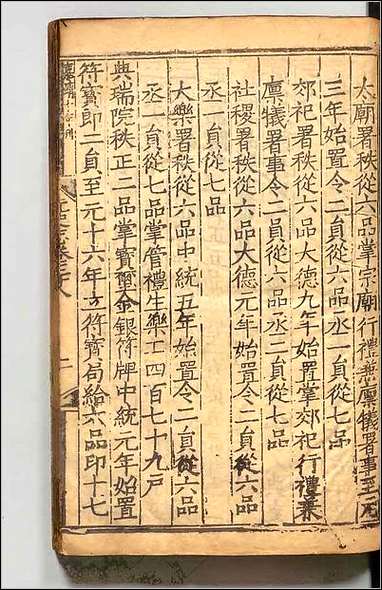 太廟署秩從六品掌宗廟行禮兼廩儀署事至元
三年始置令二員從六品丞一員從七品
郊祀署秩從六品大德九年始置掌郊祀行禮兼
廩犧署事令二員從六品丞二員從七品
社稷署秩從六品大德元年始置令二員從六品
丞一員從七品
大樂署秩從六品中統五年始置令二員從六品
丞一員從七品掌管禮生樂工四百七十九戶
典瑞院秩正二品掌寶璽金銀符牌中統元年始置
符寶郎二員至元十六年立符寶局給六品印十七